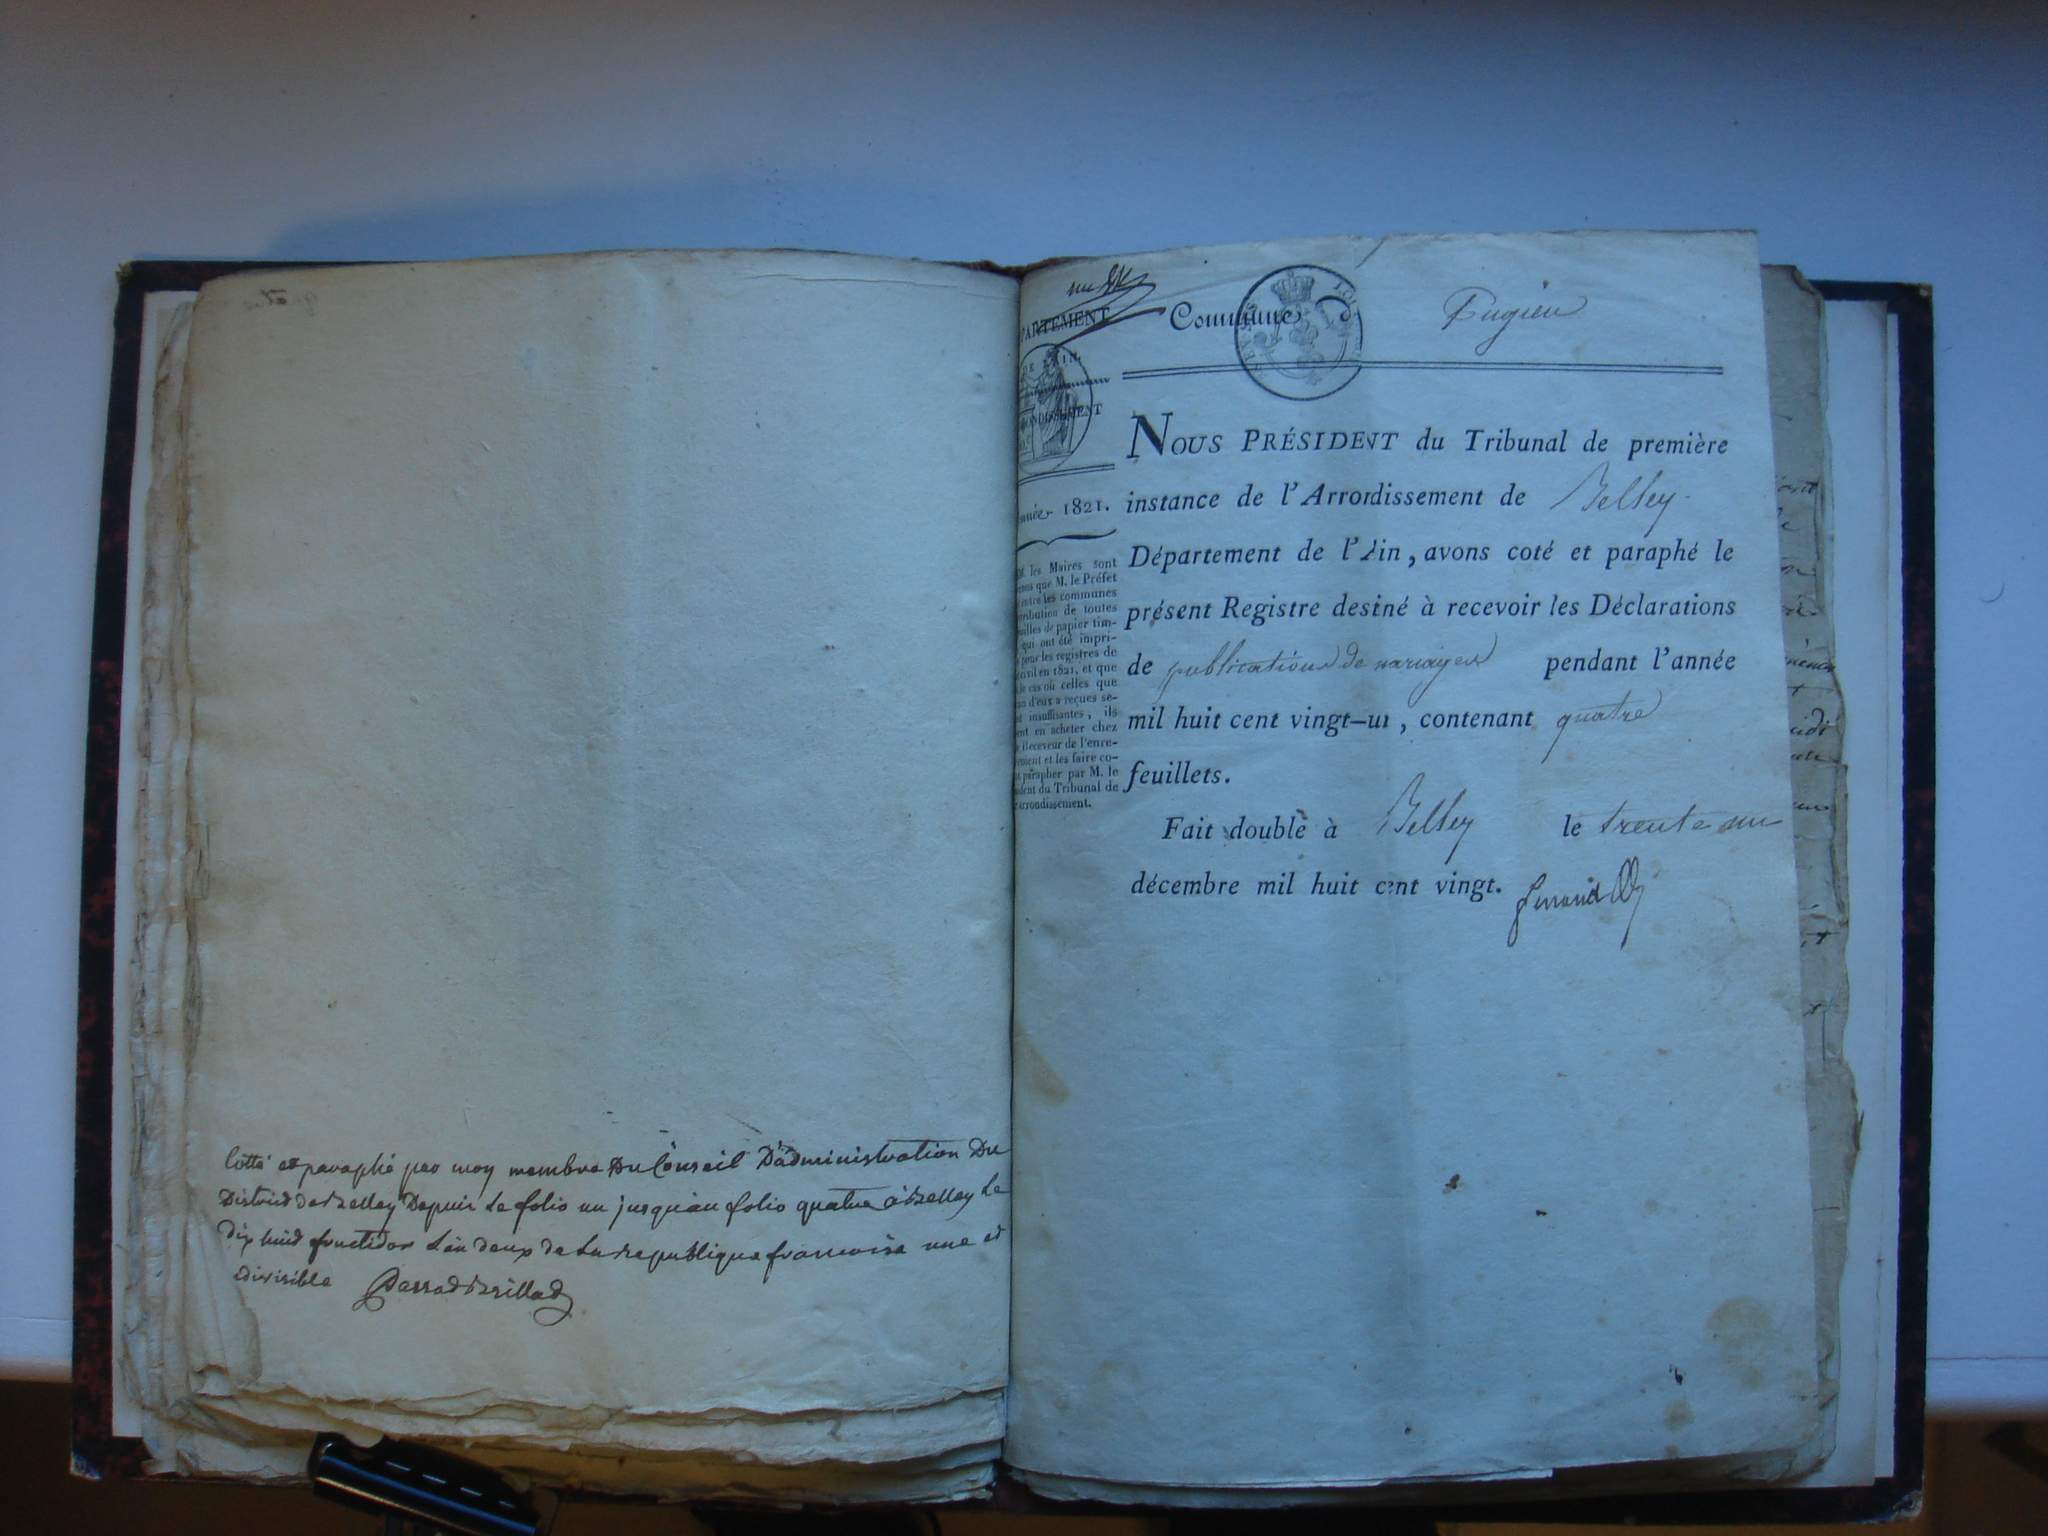 Cotté et paraphé par moy membre Du Conseil D'administration Du
District de Belley Depuis Le folio un jusquau folio quatre à Belley Le
Dix huid fructidor L'an deux de La republique francoise une et
divisible
un
PARTEMENT
DE AIN.
ONDISSEMENT
nnée 1821.
les Maires sont
que M. le Préfet
entre les communes
tribution de toutes
uilles de papier tim-
qui ont été impri-
pour les registres de
civil en 1821, et que
le cas où celles que
d'eux a reçues se-
insuffisantes, ils
ent en acheter chez
Receveur de l'enre-
ement et les faire co-
parapher par M. le
ident du Tribunal de
arrondissement.
Commune d Pugieu
NOUS PRÉSIDENT du Tribunal de première
instance de l'Arrondissement de Belley
Département de l'Ain, avons coté et paraphé le
présent Registre destiné à recevoir les Déclarations
de publications de mariages pendant l'année
mil huit cent vingt-un, contenant quatre
feuillets.
Fait double à Belley le trente un
décembre mil huit cent vingt.